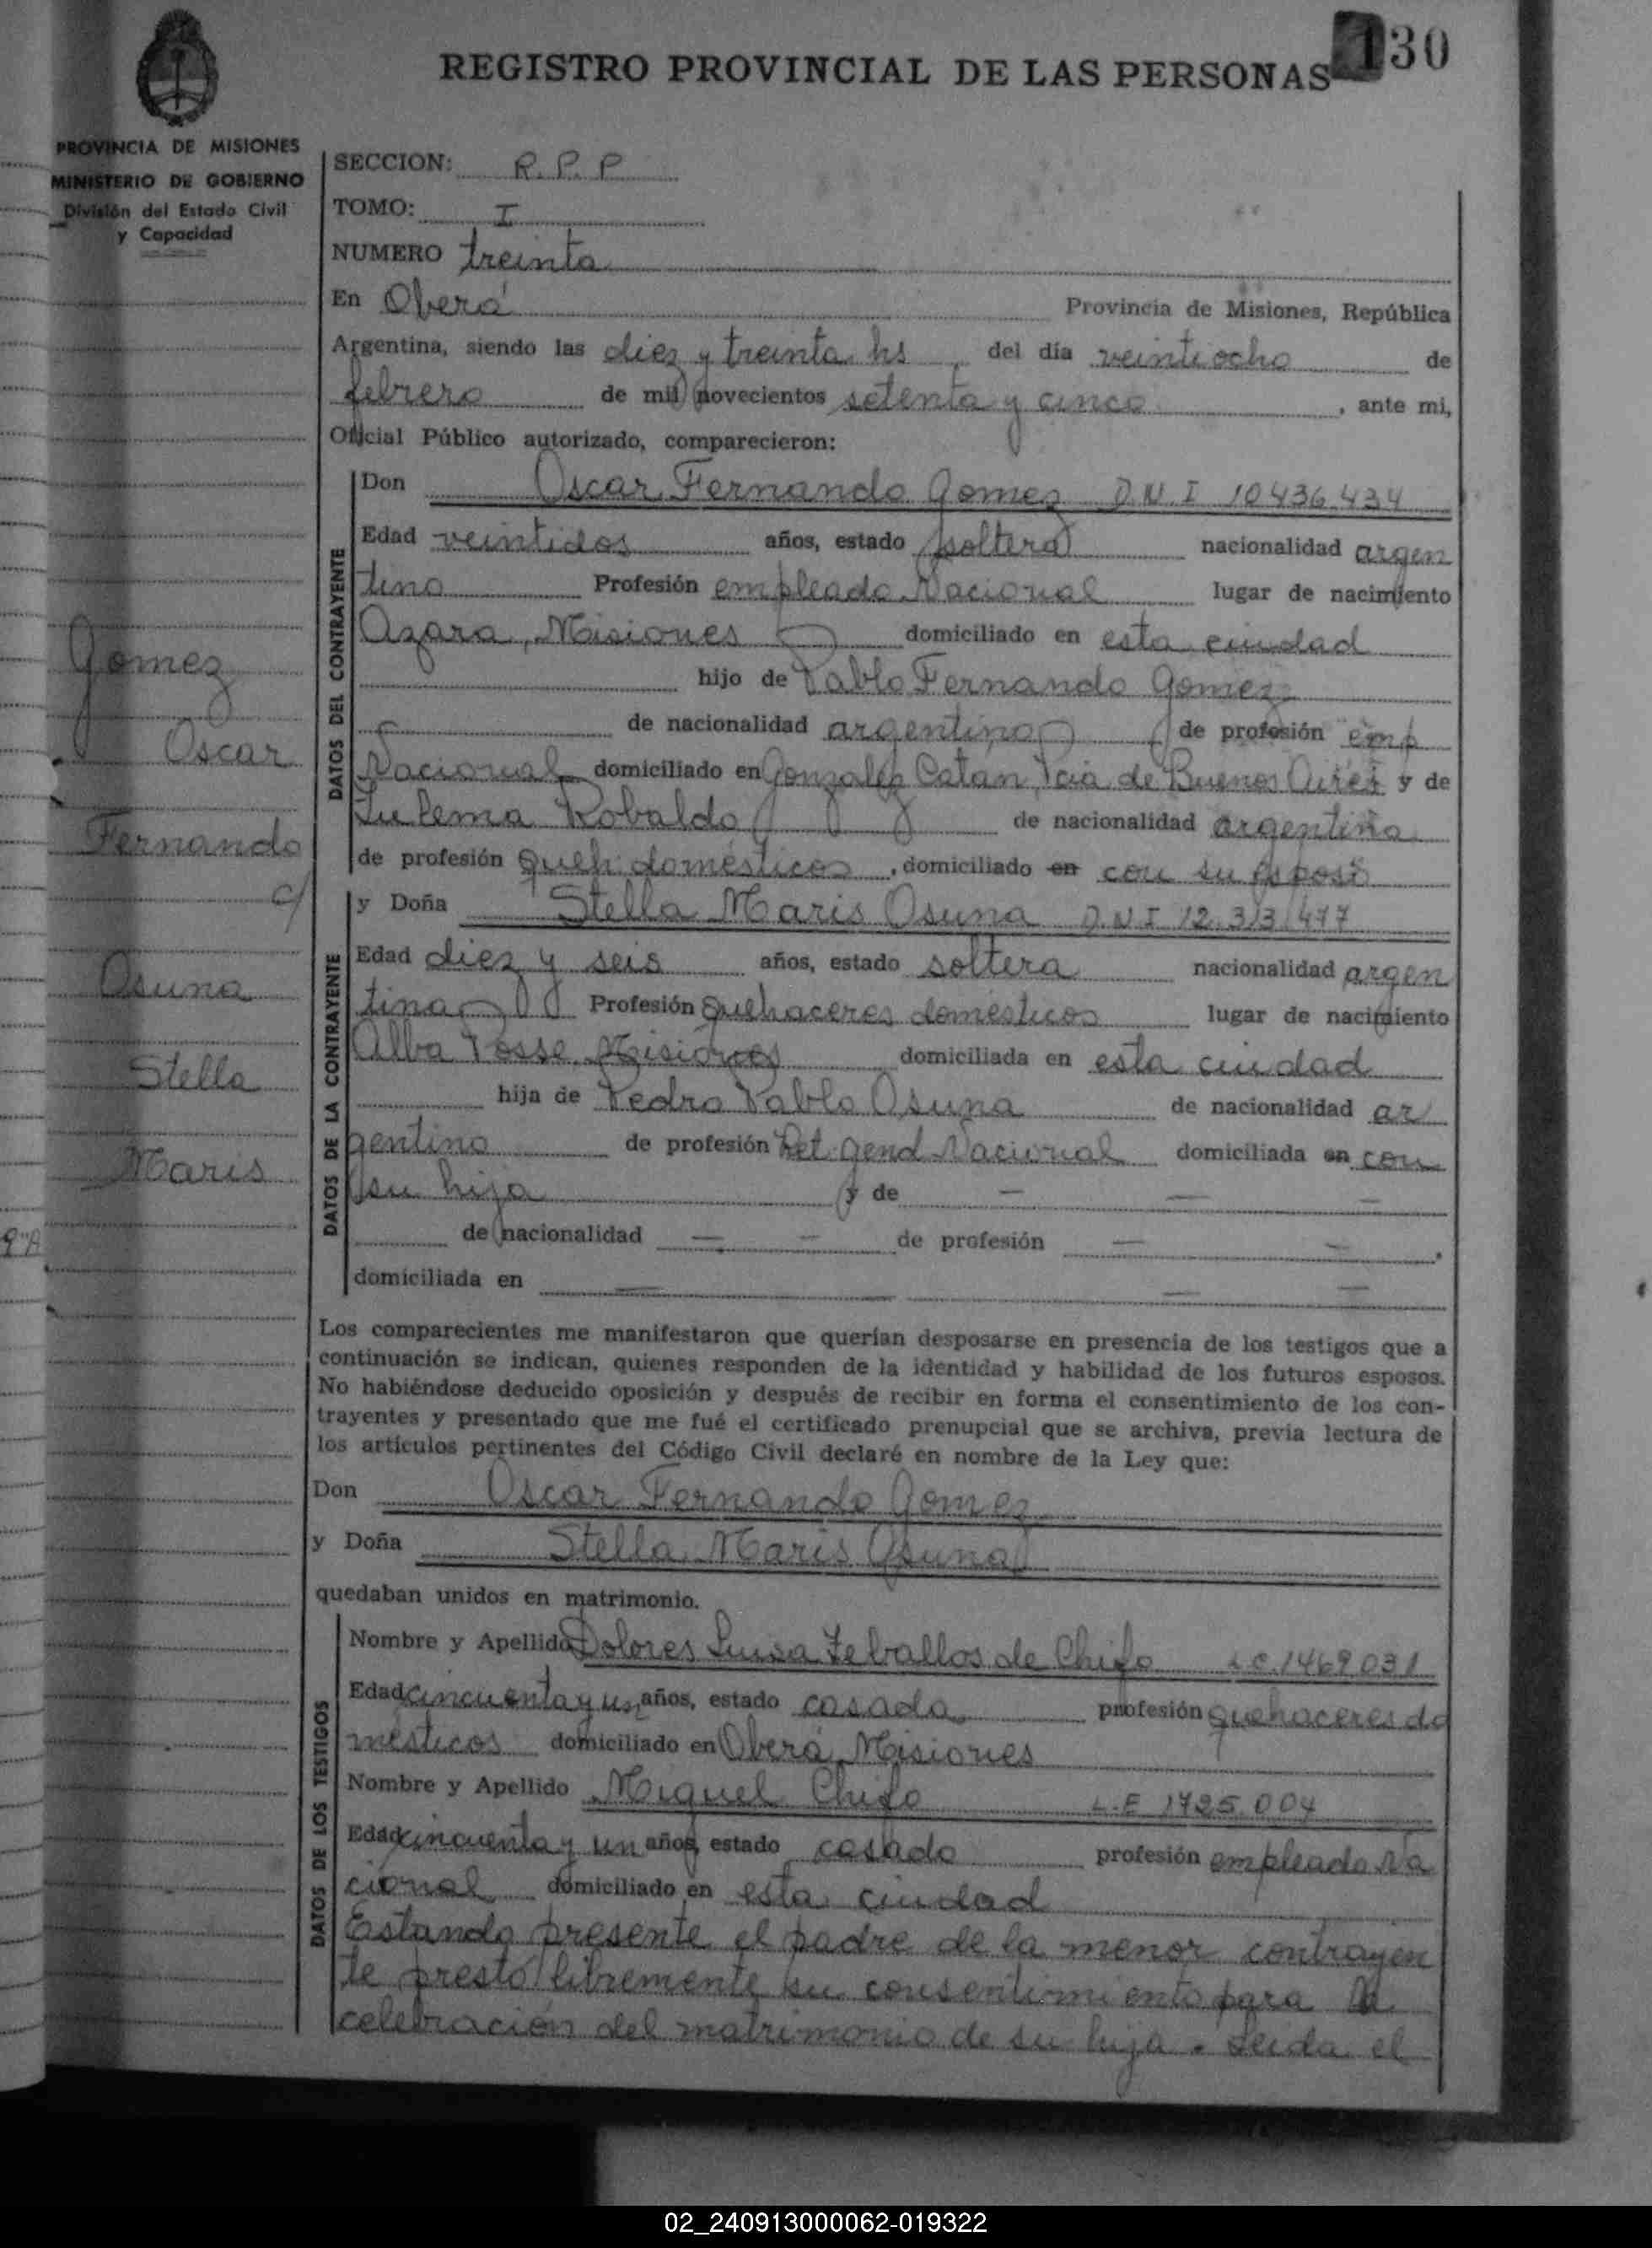 130
REGISTRO PROVINCIAL DE LAS PERSONAS
PROVINCIA DE MISIONES
MINISTERIO DE GOBIERNO
División del Estado Civil
y Capacidad
SECCION: R.P.P
TOMO: I
NUMERO treinta
En Oberá Provincia de Misiones, República
Argentina, siendo las diez y treinta hs, del día veintiocho de
febrero de mil novecientos setenta y cinco, ante mi,
Oficial Público autorizado, comparecieron:
DATOS DEL CONTRAYENTE
Don Oscar Fernando Gomez D.N.I 10436.434
Edad veintidos años, estado soltero nacionalidad argen
tino Profesión empleado Nacional lugar de nacimiento
Azara, Misiones domiciliado en esta ciudad
hijo de Pablo Fernando Gomez
de nacionalidad argentino de profesión emp
Nacional domiciliado en Gonzalez Catan, Pcia de Buenos Aires y de
Zulema Robaldo de nacionalidad argentina
de profesión queh. domésticos, domiciliado en con su esposo
Gomez
Oscar
Fernando
c/
Osuna
Stella
Maris
9"A
DATOS DE LA CONTRAYENTE
y Doña Stella Maris Osuna D.N.I 12.313.477
Edad diez y seis años, estado soltera nacionalidad argen
tina Profesión quehaceres domésticos lugar de nacimiento
Alba Posse Misiones domiciliada en esta ciudad
hija de Pedro Pablo Osuna de nacionalidad ar
gentino de profesión Ret. Gend Nacional domiciliada en con
su hija y de — — —
de nacionalidad — — de profesión — —.
domiciliada en — — —
Los comparecientes me manifestaron que querían desposarse en presencia de los testigos que a
continuación se indican, quienes responden de la identidad y habilidad de los futuros esposos.
No habiéndose deducido oposición y después de recibir en forma el consentimiento de los con-
trayentes y presentado que me fué el certificado prenupcial que se archiva, previa lectura de
los artículos pertinentes del Código Civil declaré en nombre de la Ley que:
Don Oscar Fernando Gomez
y Doña Stella Maris Osuna
quedaban unidos en matrimonio.
DATOS DE LOS TESTIGOS
Nombre y Apellido Dolores Luisa Zeballos de L.C. 1469031
Edad cincuenta y un años, estado casada profesión quehaceres do
mésticos domiciliado en Oberá Misiones
Nombre y Apellido Miguel L.E 1725.004
Edad cincuenta y un años, estado casado profesión empleado Na
cional domiciliado en esta ciudad
Estando presente el padre de la menor contrayen
te prestó libremente su consentimiento para la
celebración del matrimonio de su hija. Leida el
02_240913000062-019322